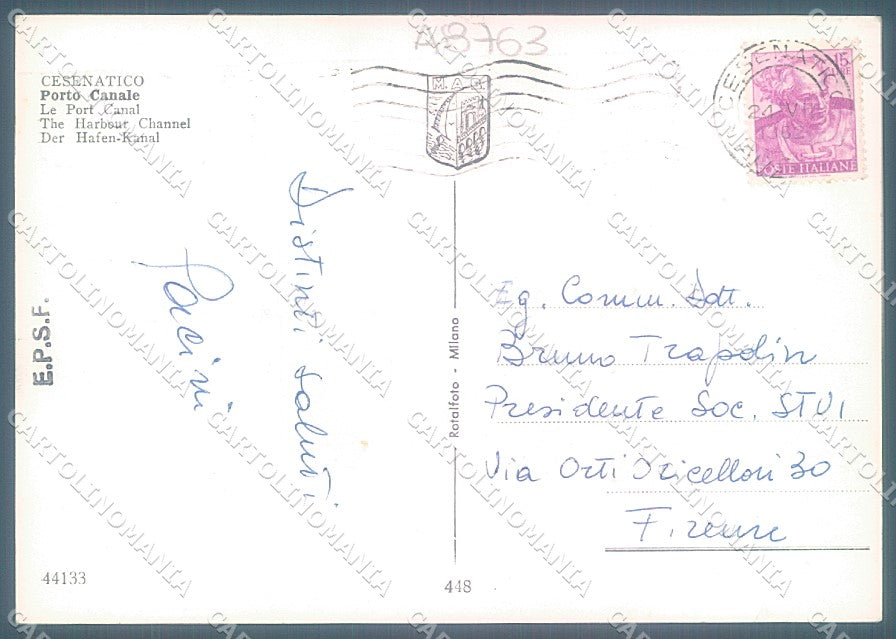 A8763
CESENATICO
Porto Canale
Le Port Canal
The Harbour Channel
Der Hafen-Kanal
M.A.R.
CESENATICO
15
POSTE ITALIANE
Distinti saluti
Pacini
E.P.S.F.
Rotalfoto - Milano
Eg. Comm. Dott.
Bruno Trapolin
Presidente Soc. STVI
Via Orti Oricellari 30
Firenze
44133
448
CARTOLINOMANIA